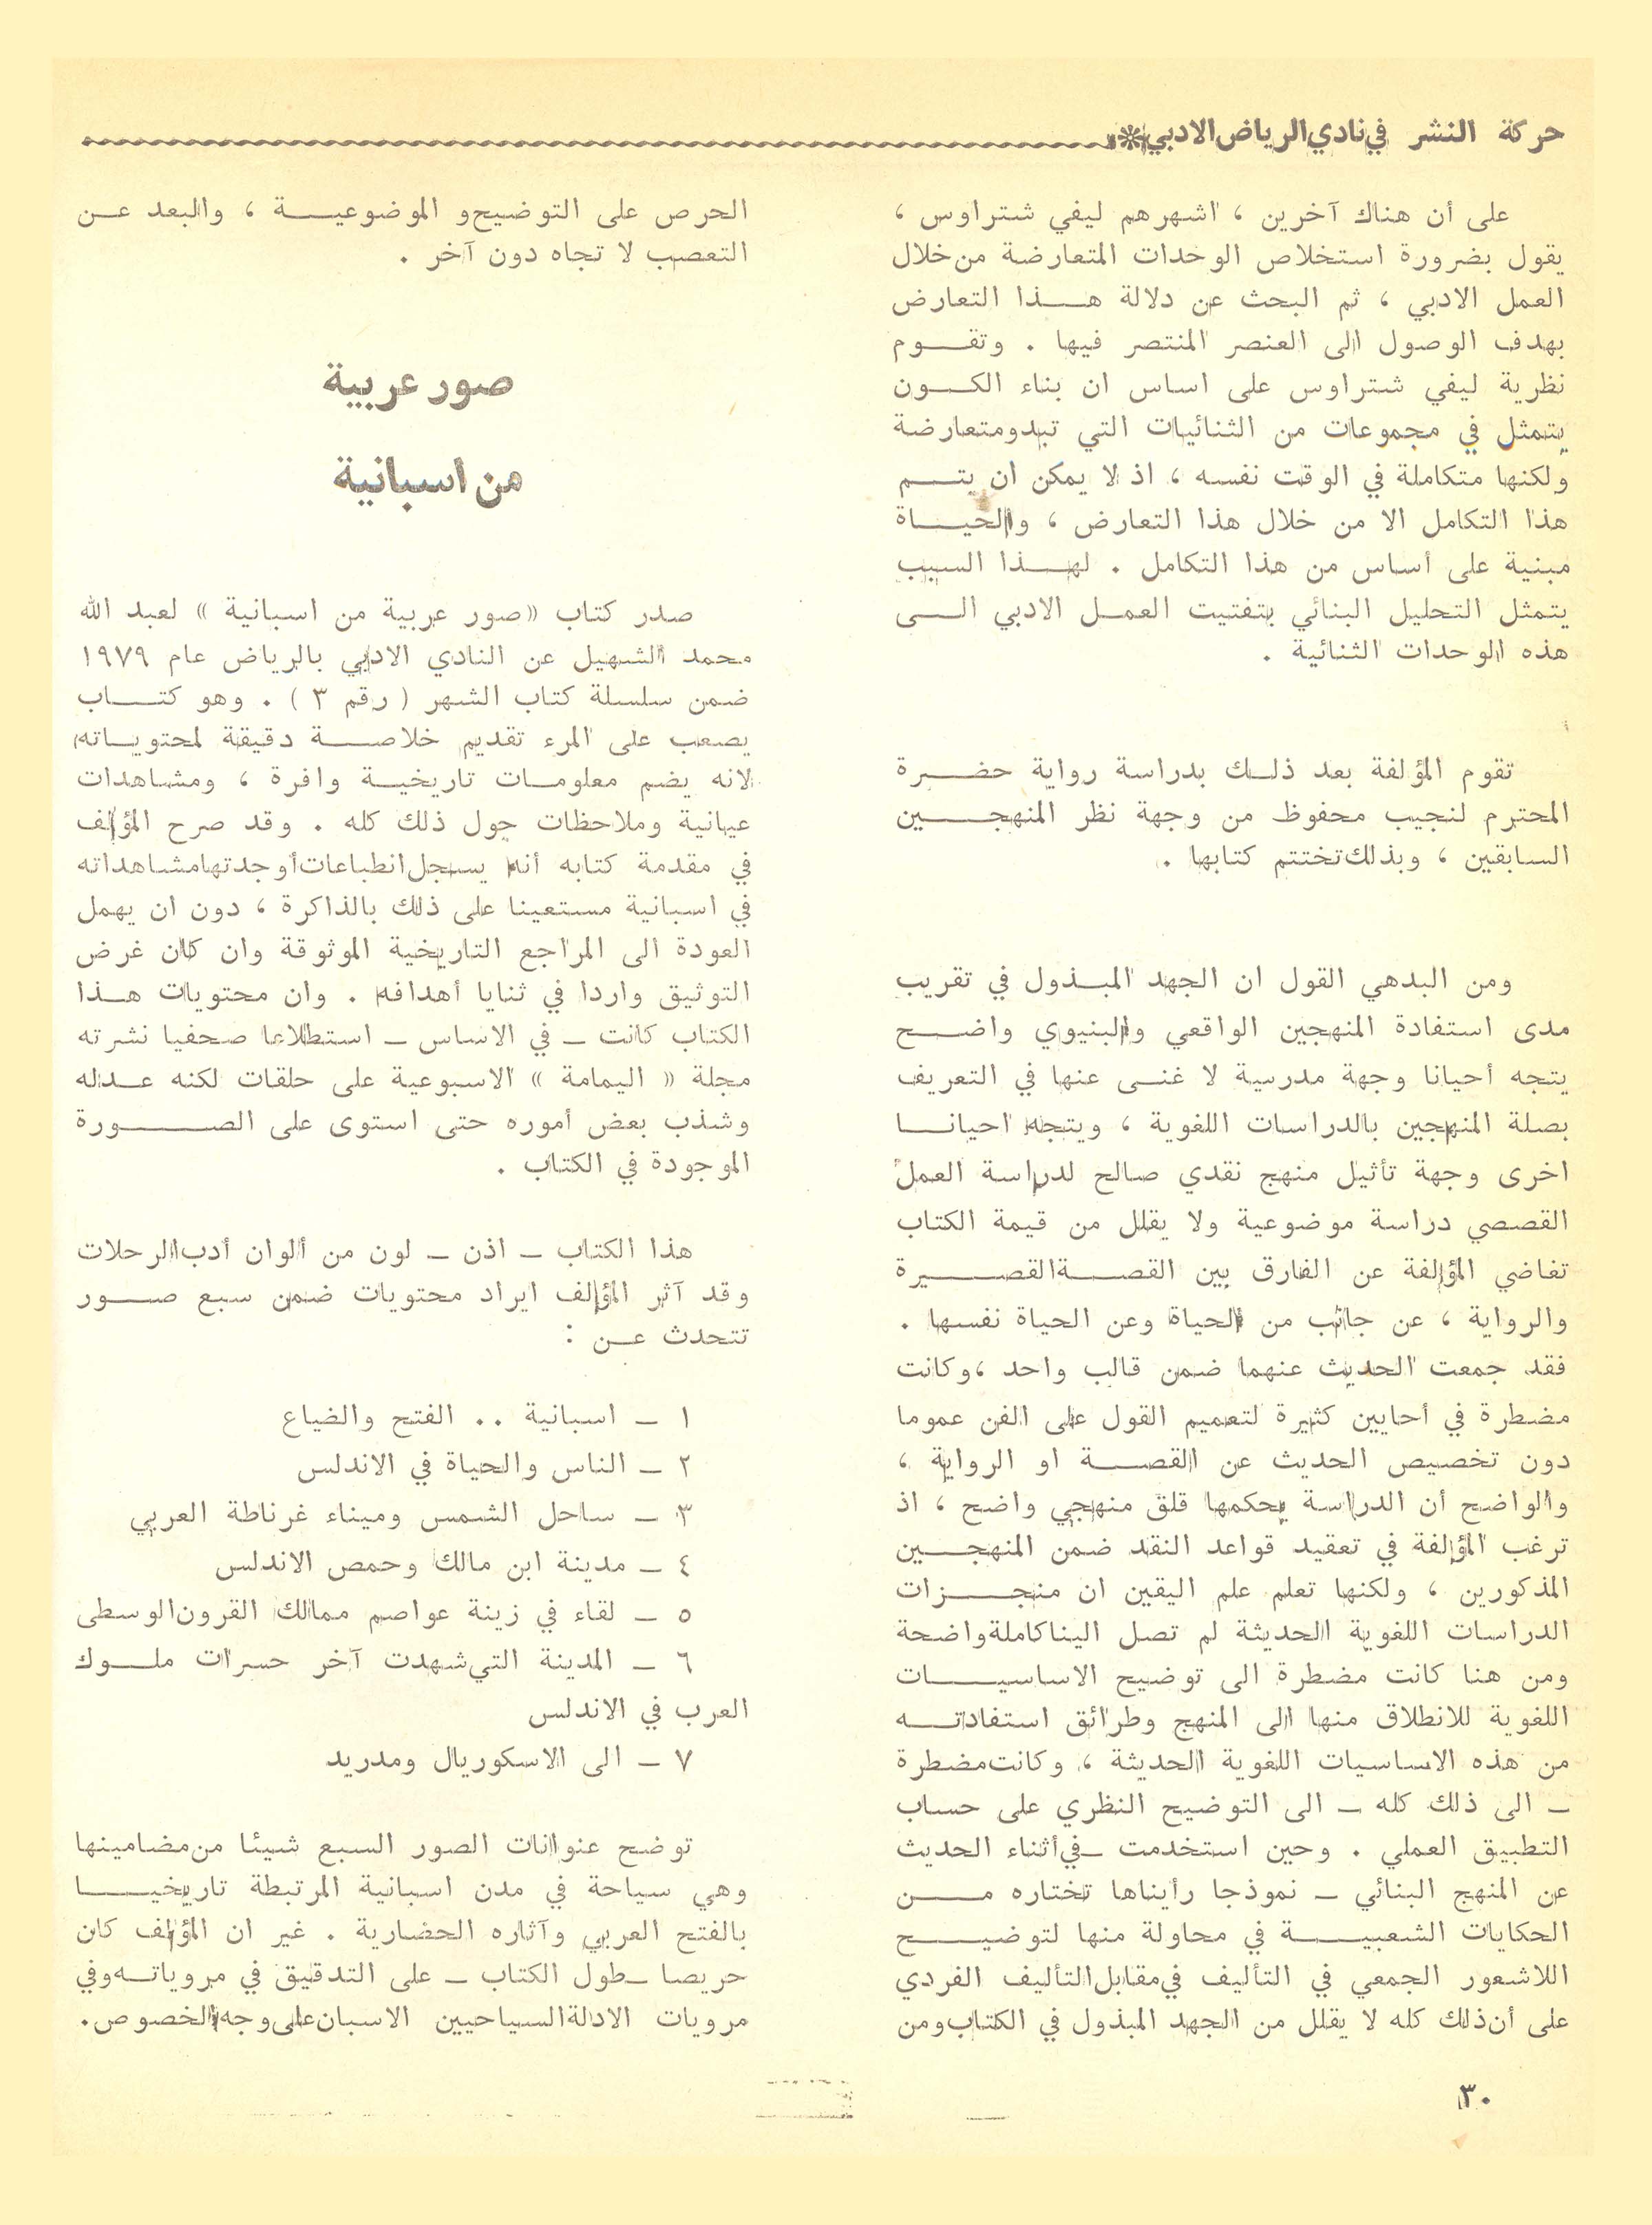 حركة النشر في نادي الرياض الادبي
على أن هناك آخرين ، اشهرهم ليفي شتراوس ،
يقول بضرورة استخلاص الوحدات المتعارضة من خلال
العمل الادبي ، ثم البحث عن دلالة هذا التعارض
بهدف الوصول الى العنصر المنتصر فيها . وتقوم
نظرية ليفي شتراوس على اساس ان بناء الكون
يتمثل في مجموعات من الثنائيات التي تبدو متعارضة
ولكنها متكاملة في الوقت نفسه ، اذ لا يمكن ان يتم
هذا التكامل الا من خلال هذا التعارض ، والحياة
مبنية على أساس من هذا التكامل . لهذا السبب
يتمثل التحليل البنائي بتفتيت العمل الادبي الى
هذه الوحدات الثنائية .
تقوم المؤلفة بعد ذلك بدراسة رواية حضرة
المحترم لنجيب محفوظ من وجهة نظر المنهجين
السابقين ، وبذلك تختتم كتابها .
ومن البدهي القول ان الجهد المبذول في تقريب
مدى استفادة المنهجين الواقعي والبنيوي واضح
يتجه أحيانا وجهة مدرسية لا غنى عنها في التعريف
بصلة المنهجين بالدراسات اللغوية ، ويتجه احيانا
اخرى وجهة تأثيل منهج نقدي صالح لدراسة العمل
القصصي دراسة موضوعية ولا يقلل من قيمة الكتاب
تغاضي المؤلفة عن الفارق بين القصة القصيرة
والرواية ، عن جانب من الحياة وعن الحياة نفسها .
فقد جمعت الحديث عنهما ضمن قالب واحد ، وكانت
مضطرة في أحايين كثيرة لتعميم القول على الفن عموما
دون تخصيص الحديث عن القصة او الرواية ،
والواضح أن الدراسة يحكمها قلق منهجي واضح ، اذ
ترغب المؤلفة في تعقيد قواعد النقد ضمن المنهجين
المذكورين ، ولكنها تعلم علم اليقين ان منجزات
الدراسات اللغوية الحديثة لم تصل الينا كاملة واضحة
ومن هنا كانت مضطرة الى توضيح الاساسيات
اللغوية للانطلاق منها الى المنهج وطرائق استفاداته
من هذه الاساسيات اللغوية الحديثة ، وكانت مضطرة
ـ الى ذلك كله ـ الى التوضيح النظري على حساب
التطبيق العملي . وحين استخدمت ـ في أثناء الحديث
عن المنهج البنائي ـ نموذجا رأيناها تختاره من
الحكايات الشعبية في محاولة منها لتوضيح
اللاشعور الجمعي في التأليف في مقابل التأليف الفردي
على أن ذلك كله لا يقلل من الجهد المبذول في الكتاب ومن
الحرص على التوضيح و الموضوعية ، والبعد عن
التعصب لا تجاه دون آخر .
صور عربية
من اسبانية
صدر كتاب « صور عربية من اسبانية » لعبد الله
محمد الشهيل عن النادي الادبي بالرياض عام ١٩٧٩
ضمن سلسلة كتاب الشهر ( رقم ٣ ) . وهو كتاب
يصعب على المرء تقديم خلاصة دقيقة لمحتوياته،
لانه يضم معلومات تاريخية وافرة ، ومشاهدات
عيانية وملاحظات حول ذلك كله . وقد صرح المؤلف
في مقدمة كتابه أنه يسجل انطباعات أوجدتها مشاهداته
في اسبانية مستعينا على ذلك بالذاكرة ، دون ان يهمل
العودة الى المراجع التاريخية الموثوقة وان كان غرض
التوثيق واردا في ثنايا أهدافه . وان محتويات هذا
الكتاب كانت ـ في الاساس ـ استطلاعا صحفيا نشرته
مجلة « اليمامة » الاسبوعية على حلقات لكنه عدله
وشذب بعض أموره حتى استوى على الصورة
الموجودة في الكتاب .
هذا الكتاب ـ اذن ـ لون من ألوان أدب الرحلات
وقد آثر المؤلف ايراد محتويات ضمن سبع صور
تتحدث عن :
١ ـ اسبانية .. الفتح والضياع
٢ ـ الناس والحياة في الاندلس
٣ ـ ساحل الشمس وميناء غرناطة العربي
٤ ـ مدينة ابن مالك وحمص الاندلس
٥ ـ لقاء في زينة عواصم ممالك القرون الوسطى
٦ ـ المدينة التي شهدت آخر حسرات ملوك
العرب في الاندلس
٧ ـ الى الاسكوريال ومدريد
توضح عنوانات الصور السبع شيئا من مضامينها
وهي سياحة في مدن اسبانية المرتبطة تاريخيا
بالفتح العربي وآثاره الحضارية . غير ان المؤلف كان
حريصا ـ طول الكتاب ـ على التدقيق في مروياته وفي
مرويات الادلة السياحيين الاسبان على وجه الخصوص.
٣٠